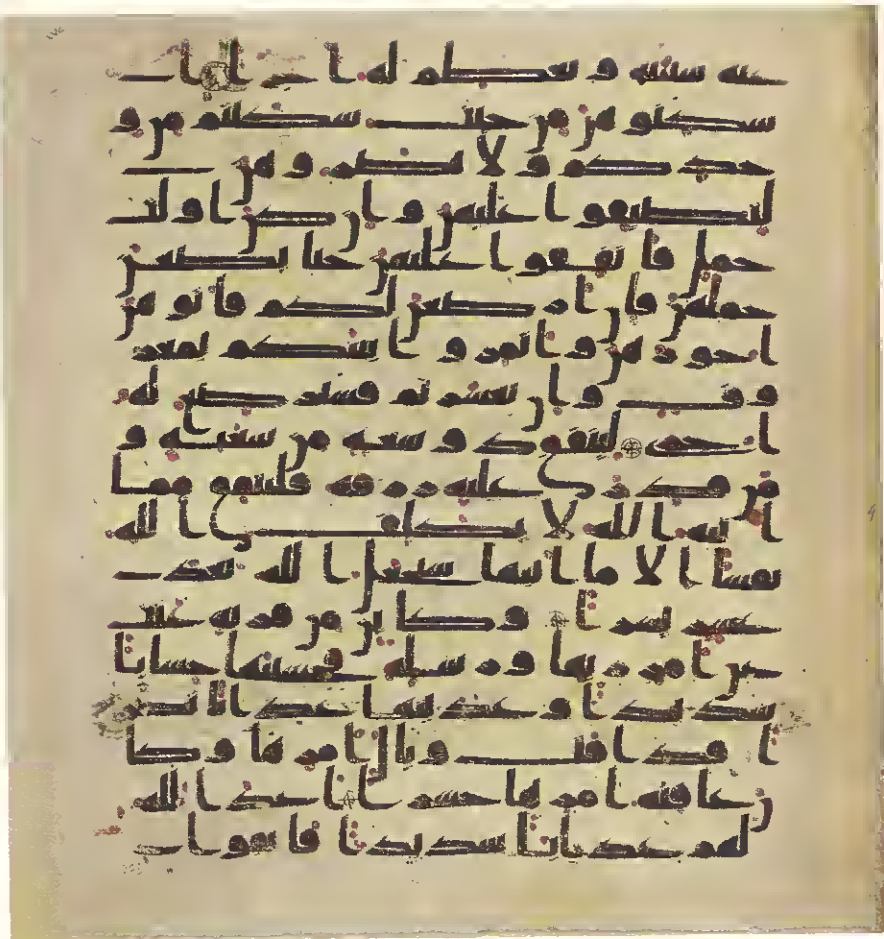 عنه سيته و يعظم له ا جرا ا
سكنو هن من حيث سكنتم من و
جدكم و لا تضرو هن
لتضيقو ا عليهن و ا ن كن ا و لت
حمل فا نفقو ا عليهن حتا يضعن
حملهن فا ن ا ر ضعن لكم فا تو هن
ا جو ر هن و ا تمر و ا بينكم بمعر
و ف و ا ن تعسر تم فستر ضع له
ا خر ى لينفق ذ و سعة من سعته و
من قد ر عليه ر ز قه فلينفق مما
ا تيه ا لله لا يكلف ا لله
نفسا ا لا ما ا تيها سيجعل ا لله بعد
عسر يسر ا و كا ين من قر ية عتت
عن ا مر ر بها و ر سله فحسبنها حسا با
شد يد ا و عذ بنها عذ ا با نكر
ا فذ ا قت و با ل ا مر ها و كا
ن عا قبة ا مر ها خسر ا ا عد ا لله
لهم عذ ا با شد يد ا فا تقو ا ا